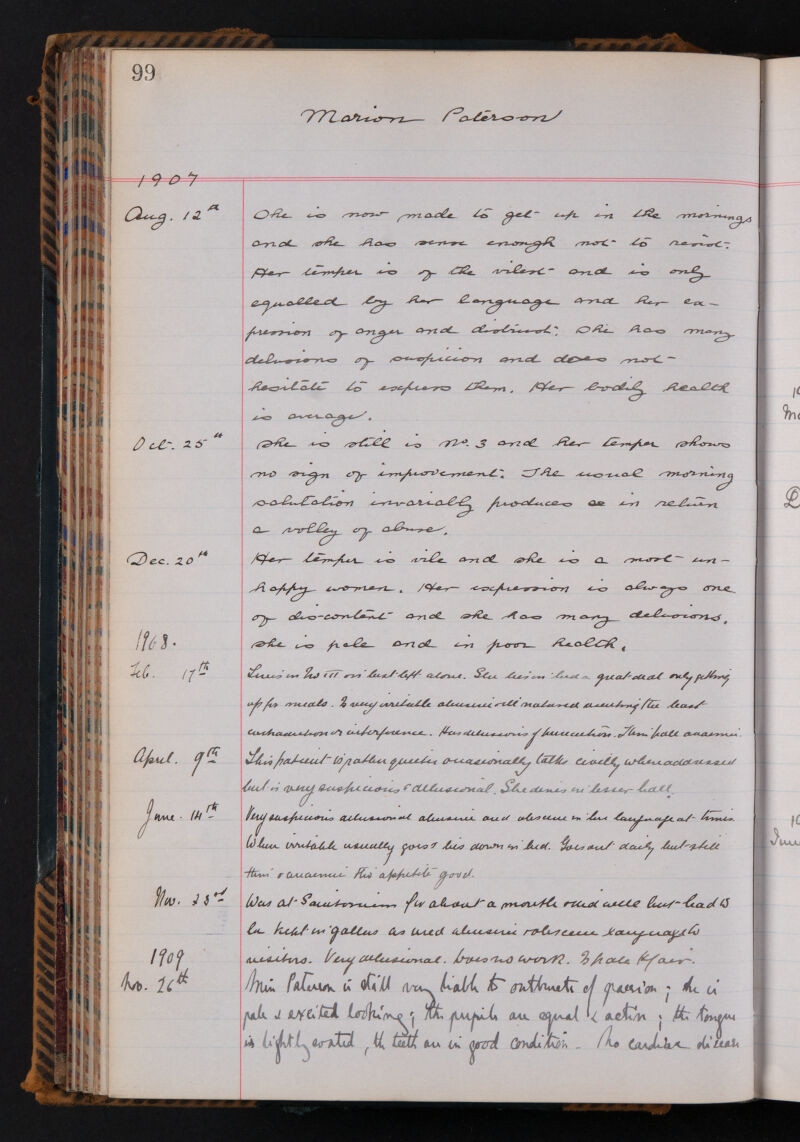 99
Marion Paterson
1907
Aug. 12th She is now made to get up in the mornings
and she has sense enough not to resist.
Her temper is of the vilest and is only
equalled by her language and her ex-
pression of anger and distrust. She has many
delusions of suspicion and does not
hesitate to express them. Her bodily health
is average.
Oct. 25th She is still is No. 3 and her temper shows
no sign of improvement. The usual morning
salutation invariably produces in return
a volley of abuse.
Dec. 20th Her temper is vile and she is a most un-
happy women. Her expression is always one
of discontent and she has many delusions.
1908. She is pale and in poor health.
Feb. 17th Lives in No III on best left alone. She lies in bed a great deal only getting
up for meals. Is very irritable abusive ill natured resenting the least
contradiction or interference. Has delusions of persecution. Thin pale anaemic.
April. 9th This patient is rather quieter occasionally talks civilly when addressed
but is very suspicious & delusional. She dines in lesser hall.
June. 14th Very suspicious delusional abusive and obscene in her language at times.
When irritable usually goes & lies down in bed. Goes out daily but still
thin & anaemic tho' appetite good.
Nov. 23rd Was at Sanitorium for about a month & did well but had to
be kept in gallery as used abusive & obscene language to
1909 visitors. Very delusional. Does no work. Is pale & fair.
Nov. 26th Miss Paterson is still very liable to outbursts of passion; she is
pale & excited looking; the pupils are equal & active; the tongue
is lightly coated, the teeth are in good condition - No cardiac disease